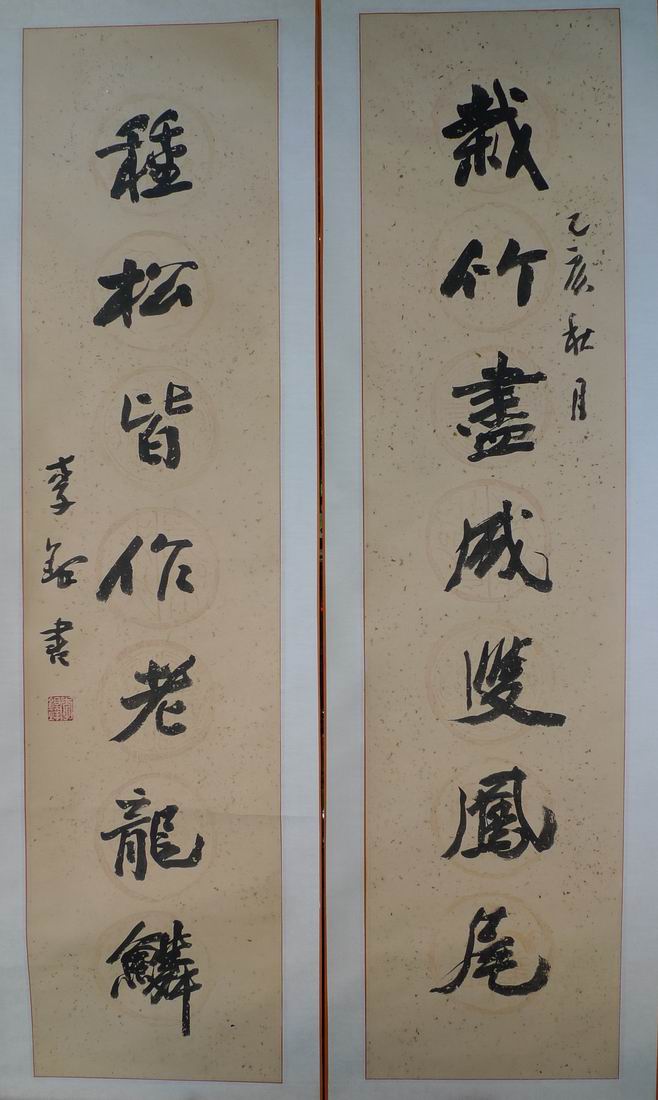 乙亥秋月
栽竹盡成雙鳳尾
種松皆作老龍鱗
李鐸書